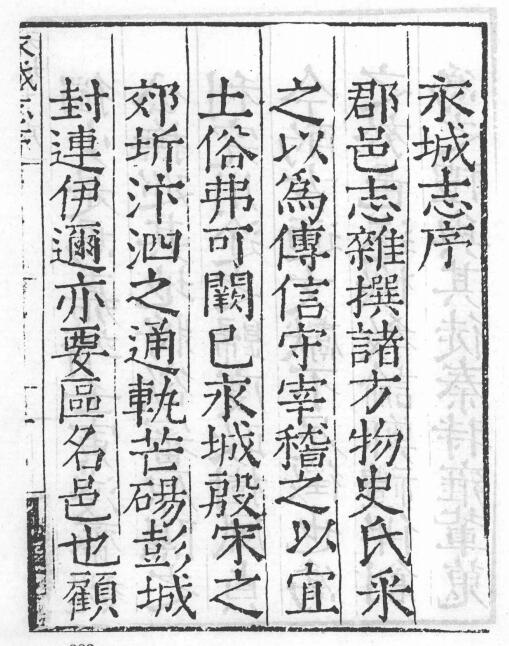 永城志序
郡邑志雜撰諸方物史氏采
之以為傳信守宰稽之以宜
土俗弗可闕已永城殷宋之
郊圻汴泗之通軌芒碭彭城
封連伊邇亦要區名邑也顧